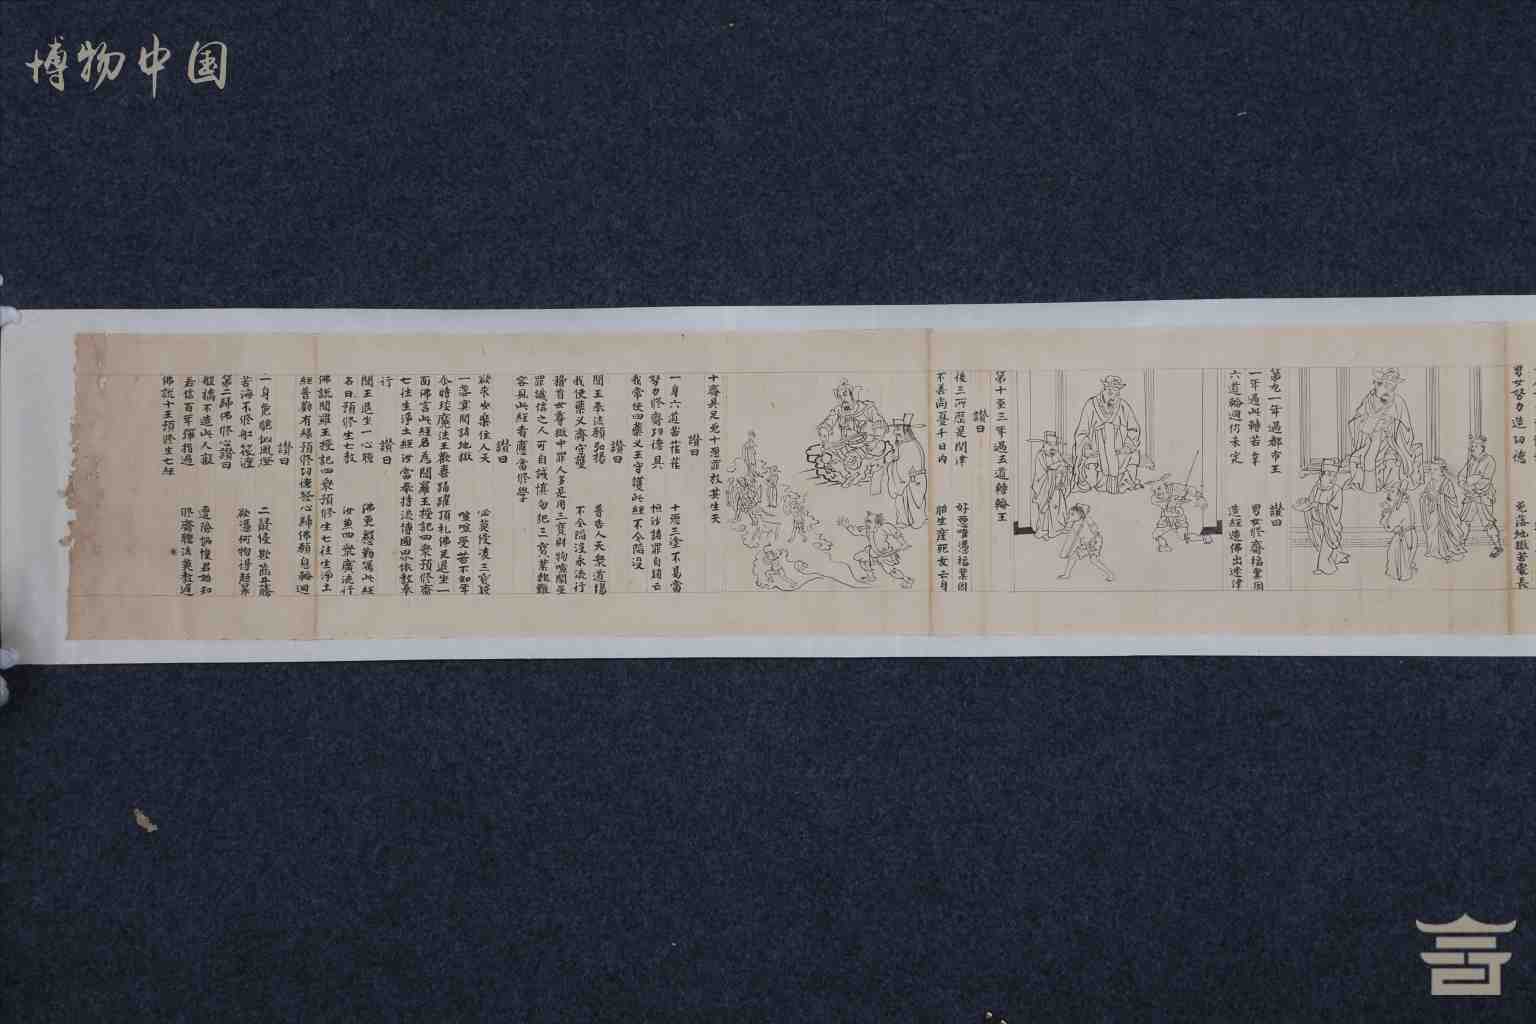 博物中国
男女努力造功德 免落地獄苦處長
第九一年過都市王
讚曰
一年過此轉苦辛 男女修齋福業因
六道輪迴仍未定 造經造佛出迷津
第十至三年過五道轉輪王
讚曰
後三所歷是關津 好惡唯憑福業因
不善尚憂千日內 胎生產死夭亡身
十齋具足免十惡罪放其生天
讚曰
一身六道苦茫茫 十惡三塗不易當
努力修齋功德具 恒沙諸罪自消亡
我常使四藥叉王守護此經不令陷沒
讚曰
閻王奉法願弘揚 普告人天衆道場
我使藥叉齊守護 不令陷沒永流行
稽首世尊獄中罪人多是用三寶財物喧閙受
罪識信之人可自誡慎勿犯三寶業報難
容見此經者應當修學
讚曰
欲求安樂住人天 必莫侵凌三寶錢
一落冥間諸地獄 喧喧受苦不知年
尒時琰魔法王歡喜踊躍頂礼佛足退坐一
面佛言此經名爲閻羅王授記四衆預修齋
七往生淨土經汝當奉持流傳國界依教奉
行
讚曰
閻王退坐一心聽 佛更慇懃囑此經
名曰預修生七教 汝兼四衆廣流行
佛說閻羅王授記四衆預修生七往生淨土
經普勸有緣預修功德發心歸佛願息輪迴
讚曰
一身危脆似風燈 二鼠侵欺齧井藤
苦海不修船栰渡 欲憑何物得超昇
第二歸佛修心讚曰
船橋不造此人癡 遭險恓惶君始知
若信百年彈指過 修齋聽法莫教遲
佛說十王預修生七經